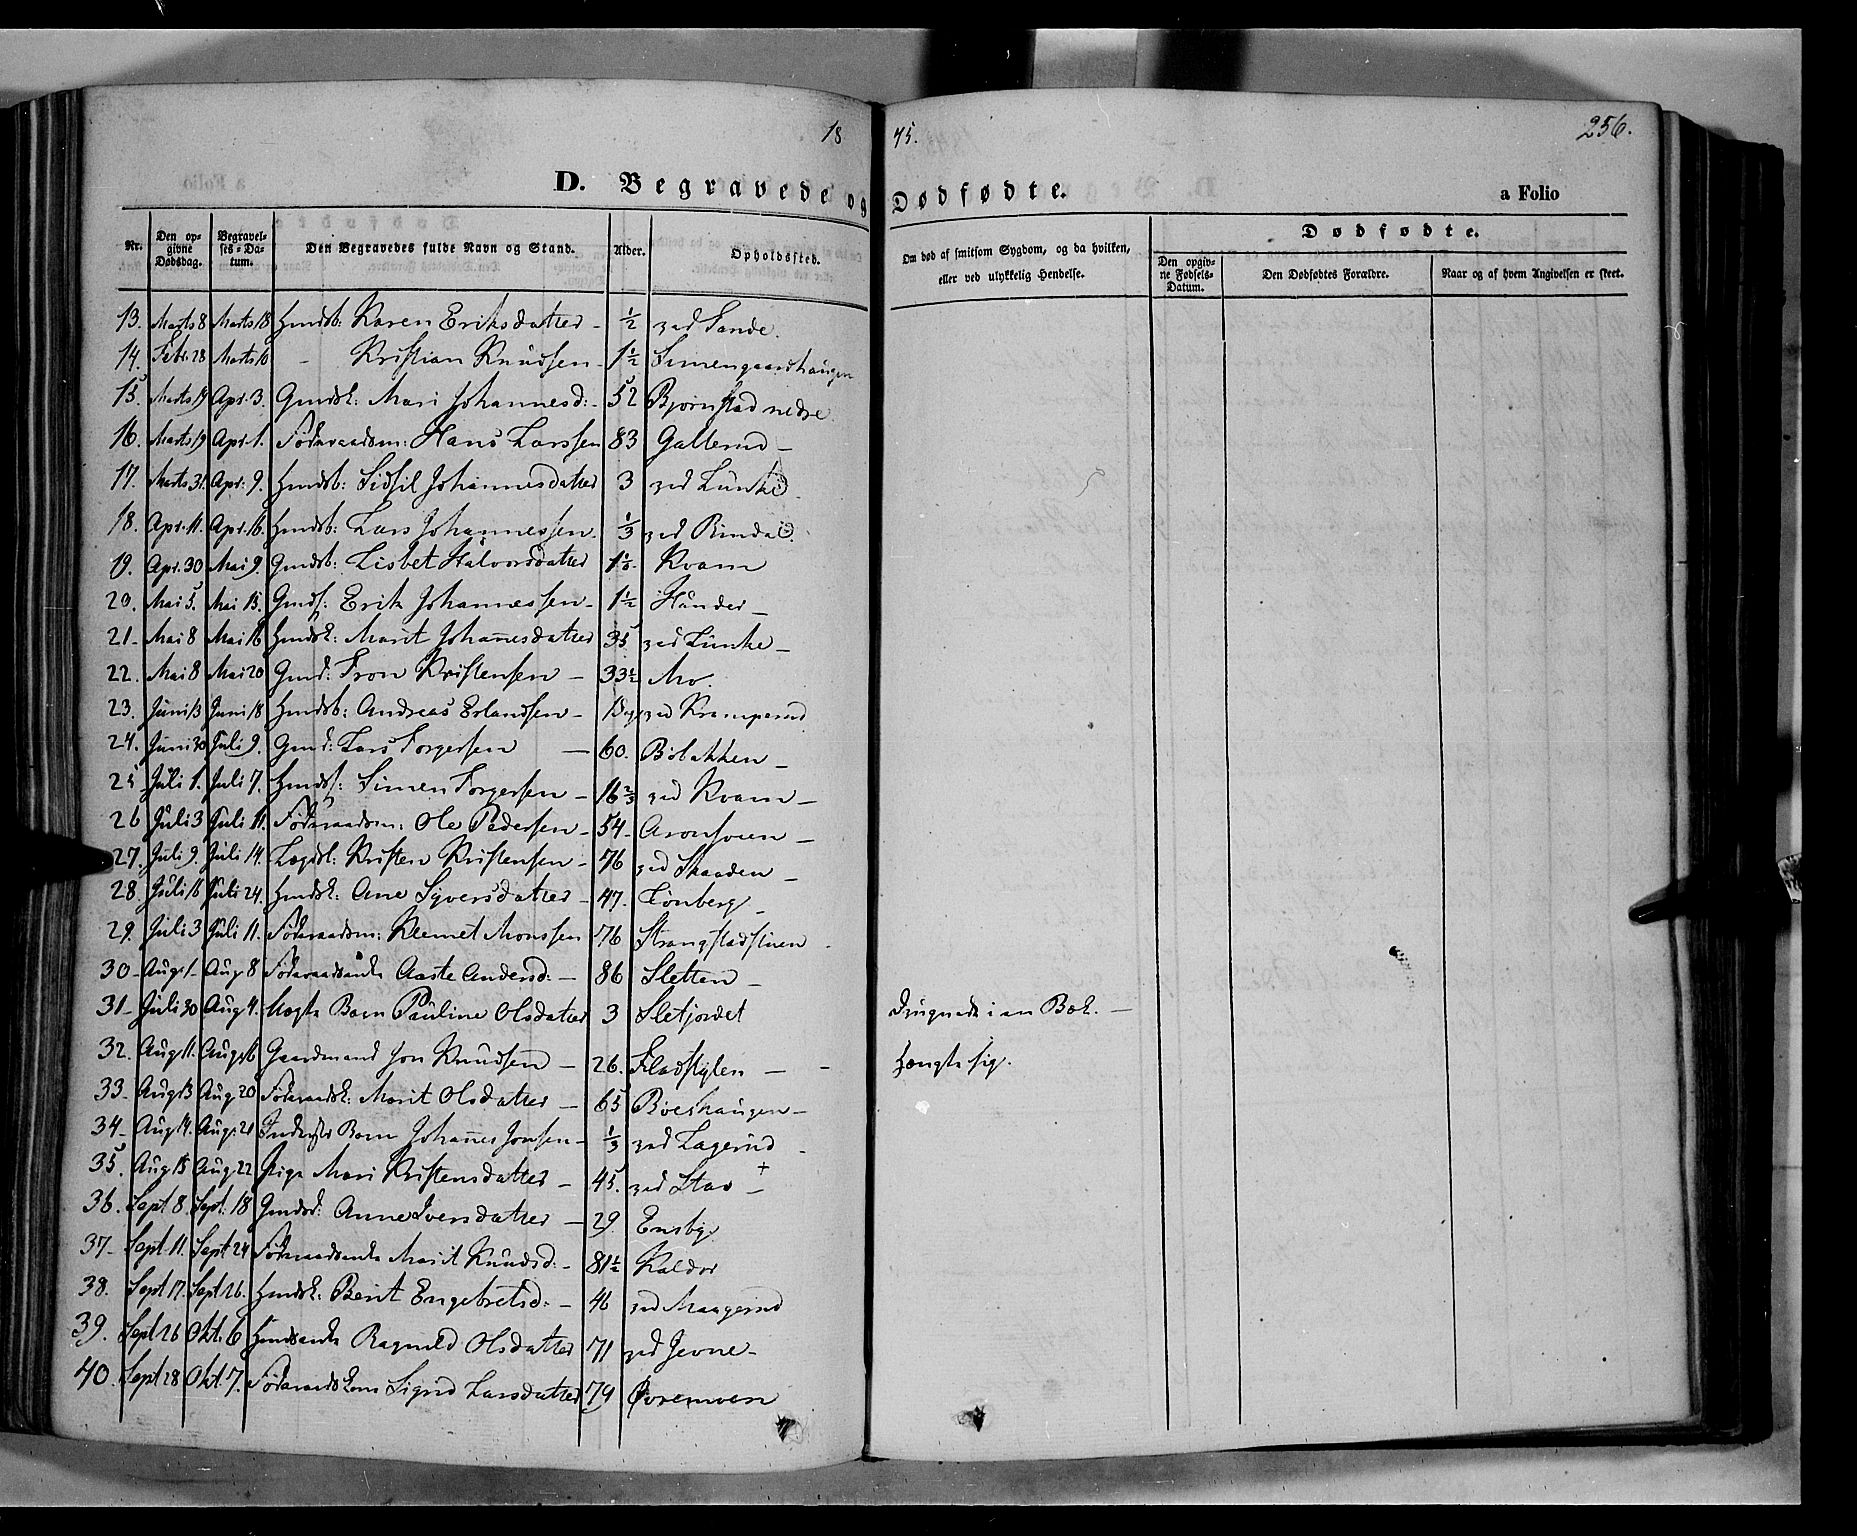 18 45. 256.
D. Begravede og Dødfødte. a Folio
Nr. Den opgivne Dødsdag. Begravelses-Datum. Den Begravedes fulde Navn og Stand. Alder. Opholdssted. Om død af smitsom Sygdom, og da hvilken, eller ved ulykkelig Hendelse. Dødfødte.
Den opgivne Fødsels-Datum. Den Dødfødtes Forældre. Naar og af hvem Angivelsen er skeet.
13. Marts 8 Marts 18 Hmdsb: Karen Eriksdatter - 1/2 ved Sande.
14. Febr. 28 Marts 16 - Kristian Knudsen - 1 1/2 Simengaardhaugen
15. Marts 17 Apr. 3. Gmdsk: Mari Johannesd: - 52 Bjørnstad nedre
16. Marts 19 Apr. 1. Føderaadsm: Hans Larssen 83 Gallerud -
17. Marts 31. Apr. 9. Hmdsb: Sidsil Johannesdatter 3 ved Lunke
18. Apr. 11. Apr. 16. Hmdsb: Lars Johannessen. 1/3 ved Rinda
19. Apr. 30 Mai 9. Gmdsb: Lisbet Halvorsdatter 1 1/2 Kvam
20. Mai 5. Mai 15. Gmds: Erik Johannessen - 1 1/2 Hunder -
21 - Mai 8 Mai 16 Hmdsk: Marit Johannesdatter 35 ved Lunke -
22. Mai 8 Mai 20 Gmd: Tron Kristensen - 33 1/2 Mo.
23. Juni 13 Juni 18 Hmdsb: Andreas Erlandsen - ved Kramperud
24. Juni 30 Juli 9. Gmd: Lars Torgersen - 60. Bøbakken -
25 Juli 1. Juli 7. Hmds: Simen Torgersen - 16 2/3 ved Kvam -
26 Juli 3 Juli 11. Føderaadsm: Ole Pedersen - 54 - Aronsveen -
27. Juli 9. Juli 14. Lægdsl: Kristen Kristensen - 76 ved Skaaden -
28. Juli 16 Juli 24. Hmdsk: Ane Syversdatter - 47. Lønberg -
29. Juli 3 Juli 11. Føderaadsm: Klemet Monssen 76 Strangstadstuen -
30 - Aug. 1 - Aug 8 Føderaadsenke Aaste Andersd: - 86 Sletten -
31 - Juli 30 Aug 4. Uægte Barn Pauline Olsdatter 3 Sletjordet Druknede i en Bæk. -
32. Aug. 11. Aug. 16 Gaardmand Jon Knudsen - 26. Fladstylen - - Hængte sig.
33. Aug 13 Aug 20 Føderaadsk: Marit Olsdatter - 65 Bøeshaugen -
34 - Aug 14. Aug. 21 Inderster Barn Johannes Jonsen - 1/3 ved Lagerud -
35. Aug 15 Aug 22 Pige Mari Kristensdatter - 45. ved Stav +
36. Sept 8. Sept. 18 Gmdsd: Anne Iversdatter - 29. Ensby.
37 - Sept 11. Sept 24 Føderaadsenke Marit Knudsd: - 81 1/2 Kaldor
38. Sept 17. Sept 26. Hmdsk: Berit Engebretsd: - 46 ved Maagerud
39. Sept 26 Okt. 6 Hmdsenke Ragnild Olsdatter 71 ved Jevne -
40. Sept 28 Okt. 7. Føderaadskone Sigrid Larsdatter 79 Øvremoen